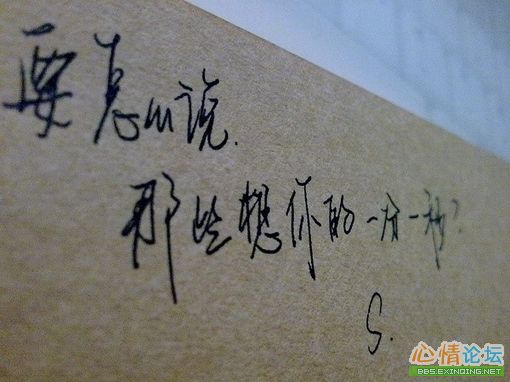 要怎么说.
那些想你的一分一秒?
S.
心情论坛
BBS.EXINQING.NET